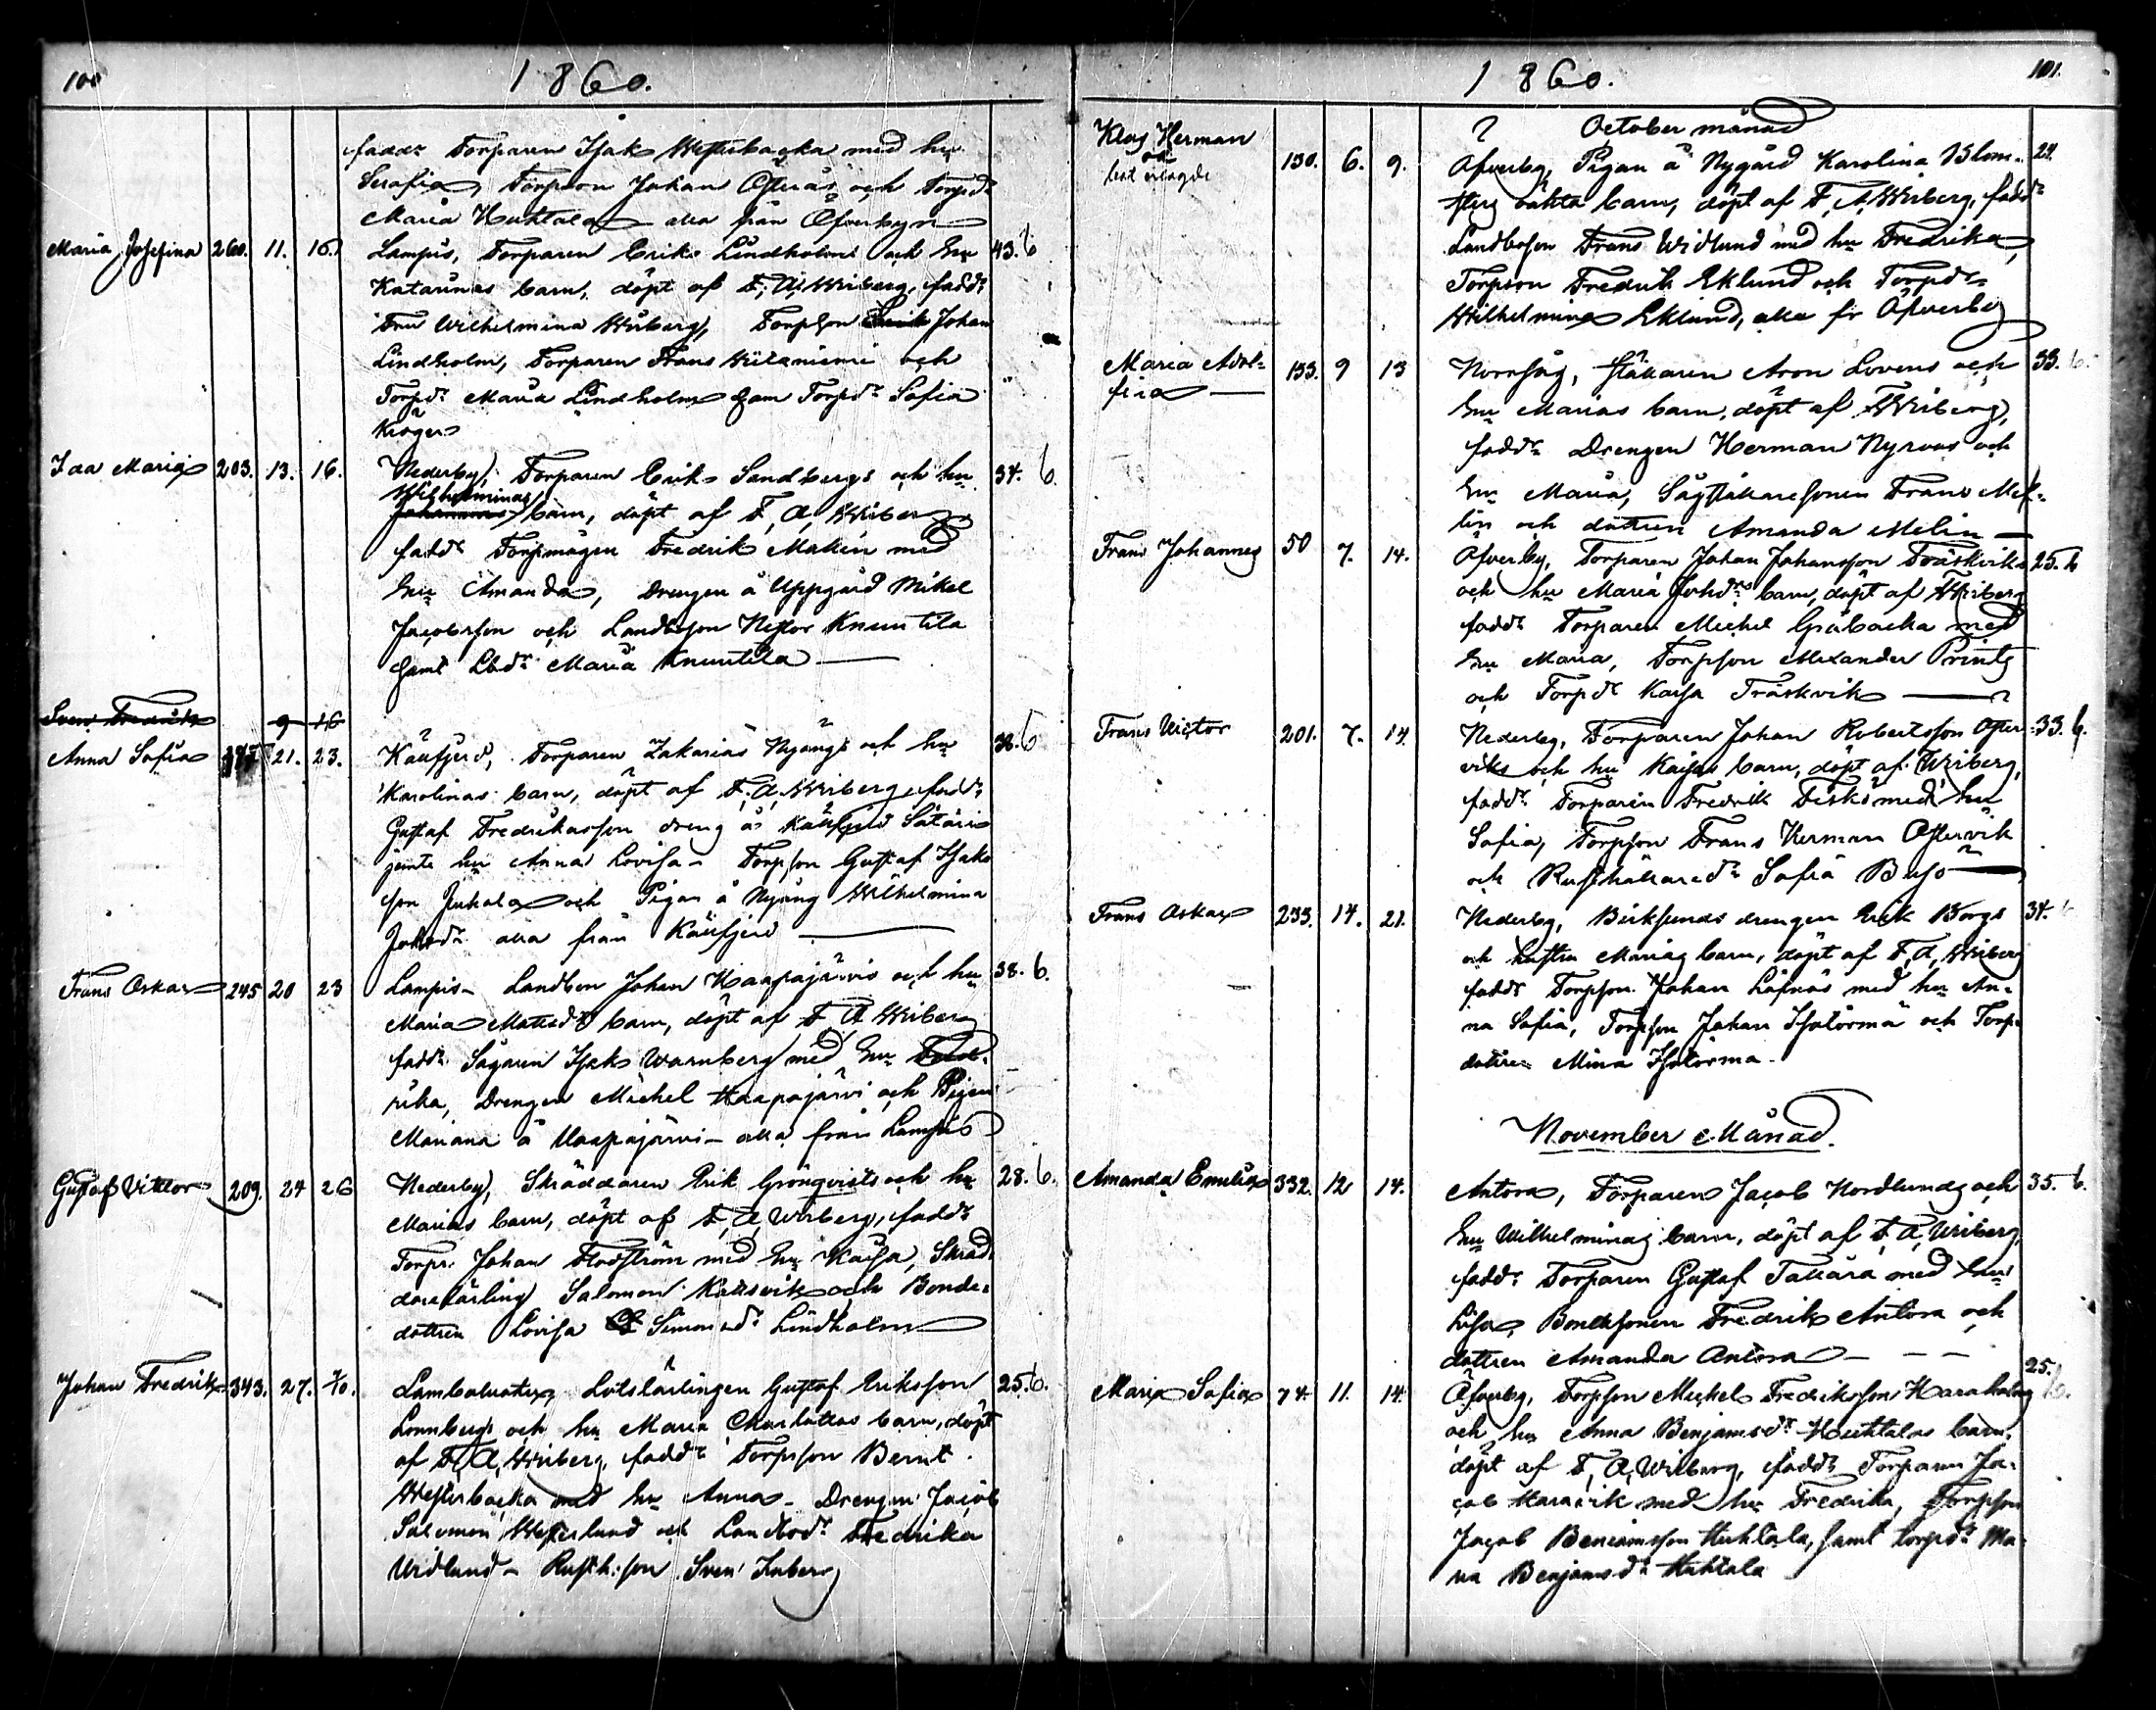 100
1860.
faddr Torparen Isak Westerbacka med hu
Serafia, Torpson Johan Österås och Torpdr
Maria Huhtala alla från Öfverbyn
Maria Josefina 260. 11. 16. Lampis, Torparen Eriks Lindholms och hu 43. b
Katarinas barn, döpt af F. A. Wriberg, faddr
Fru Wilhelmina Wriberg, Torpson Johan
Lindholm, Torparen Frans och
Torpdr Maria Lindholm Sam Torpdr Sofia
Kröger
Ida Maria 203. 13. 16. Nederby, Torparen Eriks Sandbergs och hu 34. b
Wilhelminas
barn, döpt af F. A. Wriberg
faddr Torpmågen Fredrik Malen med
hu Amanda, Drengen å Uppgård Mikel
Jacobsson och Landboson Nestor Knuutila
samt Lbdr Maria Knuutila
Sven Fredrik 9 16
Anna Sofia 21. 23. Käufjerd, Torparen Zakarias Nyängs och hu 38. b
Karolinas barn, döpt af F. A. Wriberg, faddr
Gustaf Fredriksson dreng å Käufjerd Säteri
jemte hu Anna Lovisa – Torpson Gustaf Isaks
son Juhala och Pigan å Nyäng Wilhelmina
Johdr alla från Käufjerd
Frans Oskar 245 20 23 Lampis – Landbon Johan Haapajärvis och hu 38. b.
Maria Mattsdr barn, döpt af F. A. Wriberg
faddr Sågaren Isak Warnberg med hu Fred-
rika, Drengen Michel Haapajärvi och Pigan
Mariana å Haapajärvi – alla från Lampis
Gustaf Viktor 209. 24 26 Nederby, Skräddaren Erik Grönqvists och hu 28. b.
Marias barn, döpt af F. A. Wriberg, faddr
Torpr. Johan Flodström med hu Kajsa, Skräd
darelärling Salomon Kallsvik och Bonde-
dottren Lovisa Simonsdr Lindholm
Johan Fredrik 343. 27. 7/10. Lambaluoto, Lotslärlingen Gustaf Eriksson 25. b.
Lönnbergs och hu Maria Charlottas barn, döpt
af F. A. Wriberg, faddr Torpson Bernt
Westerbacka med hu Anna – Drengen Jacob
Salomon Westerlund och Landbodr Fredrika
Widlund – Rusth.son Sven Inberg
1860.
101.
October månad
Klas Herman
oä
130. 6. 9. Öfverby, Pigan å Nygård Karolina Blom- 29.
sterg oäkta barn, döpt af F. A. Wriberg, faddr
Landboson Frans Widlund med hu Fredrika,
Torpson Fredrik Eklund och Torpdr
Wilhelmina Eklund, alla fr Öfverby
Maria Adol= 133. 9 13 Norrsåg, stakaren Aron Lovens och 33. b.
fina
hu Marias barn, döpt af Wriberg,
faddr Drengen Herman Nyroos och
hu Maria, Sågstakaresonen Frans Me-
lin och dottren Amanda Melin
Frans Johannes 50 7. 14. Öfverby, Torparen Johan Johansson Träskviks 25. b
och hu Maria Johdrs barn, döpt af Wriberg
faddr Torparen Michel Gräbacka med
hu Maria, Torpson Alexander Printz
och Torpdr Kajsa Träskvik
Frans Victor 201. 7. 14 Nederby, Torparen Johan Robertsson Öster- 33. b.
viks och hu Kajsas barn, döpt af Wriberg,
faddr Torparen Fredrik Fisks med hu
Sofia, Torpson Frans Herman Östervik
och Rusthållaredr Sofia Busö
Frans Oskar 233. 14. 21. Nederby, Birksunds drengen Erik Borgs 34. b
och hustru Marias barn, döpt af F. A. Wriberg
faddr Torpson Johan Löfnäs med hu An-
na Sofia, Torpson Johan Isotorma och Torp-
dottren Mina Isotorma.
November Månad.
Amanda Emilia 332. 12 14. Antora, Torparen Jacob Nordlunds och 35. b.
hu Wilhelminas barn, döpt af F. A. Wriberg,
faddr Torparen Gustaf Takara med hu
Lisa, Bondesonen Fredrik Antora och
dottren Amanda Antora
Maria Sofia 74. 11. 14. Öfverby, Torpson Michel Fredriksson Haraholms 25. b.
och hu Anna Benjamsdr Huhtalas barn,
döpt af F. A. Wriberg, faddr Torparen Ja-
cob Haravik med hu Fredrika, Torpson
Jacob Benjamsson Huhtala, samt torpdr Ma-
ria Benjamsdr Huhtala